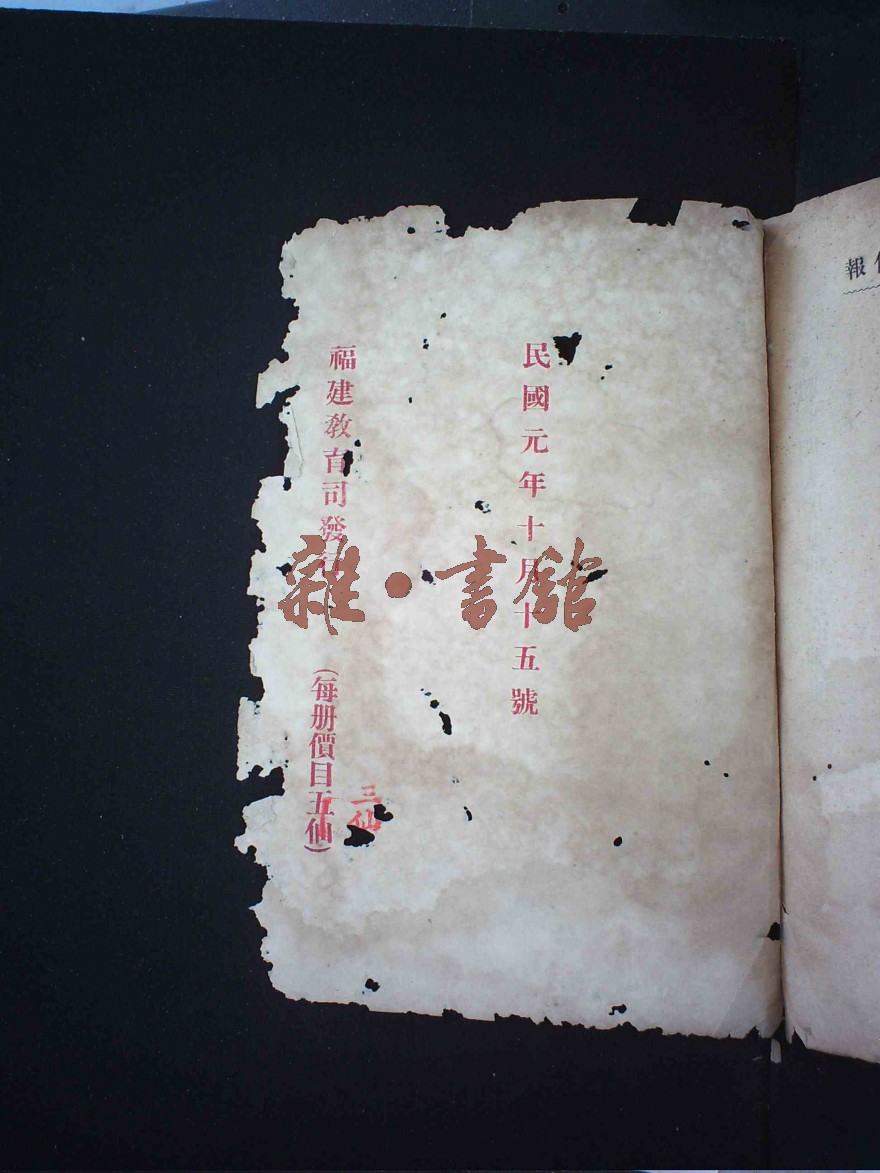 民國元年十月十五號
福建教育司發行
（每册價目五仙）
三仙
雜·書館
報